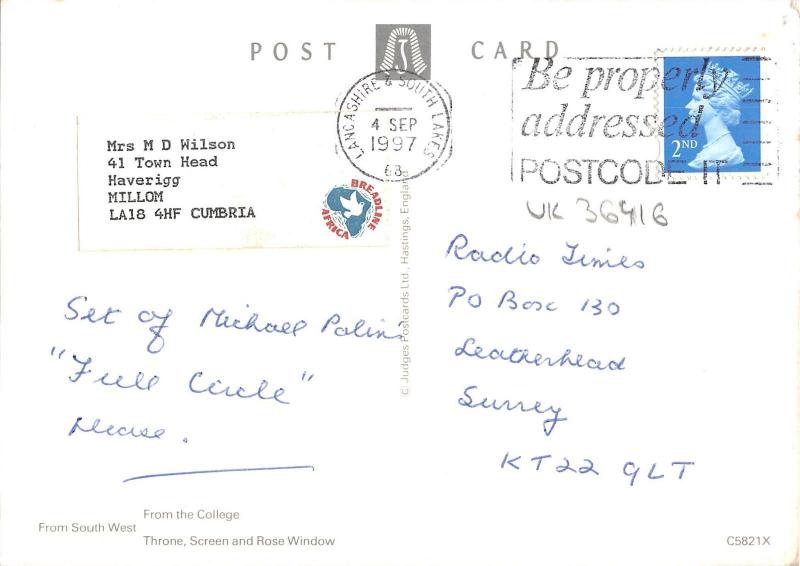 POST CARD
LANCASHIRE & SOUTH LAKES
4 SEP
1997
68
Be properly
addressed
POSTCODE IT
2ND
UK 36416
Mrs M D Wilson
41 Town Head
Haverigg
MILLOM
LA18 4HF CUMBRIA
BREADLINE
AFRICA
© Judges Postcards Ltd., Hastings, England
Set of Michael Palin's
"Full Circle"
please.
Radio Times
PO Box 130
Leatherhead
Surrey
KT22 9LT
From the College
From South West
Throne, Screen and Rose Window
C5821X